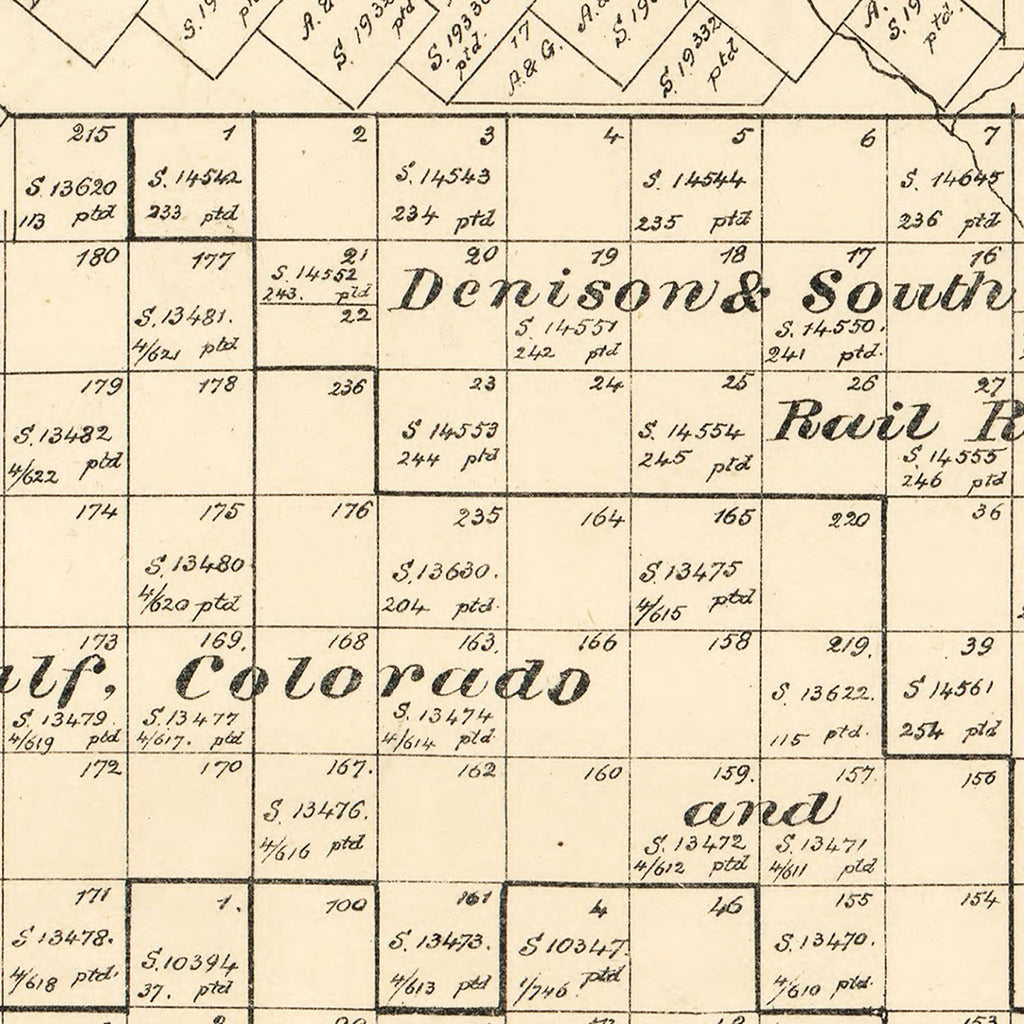 A. &
S. 1932
ptd
S. 19330
ptd.
17
A. & G.
S. 19332
ptd
ptd.
215
S. 13620
113 ptd
1
S. 14542
233 ptd
2
3
S. 14543
234 ptd
4
5
S. 14544
235 ptd
6
7
S. 14645
236 ptd
180
177
S. 13481.
4/621 ptd
21
S. 14552
243. ptd
22
20
19
18
17
16
Denison & South
S. 14551
242 ptd
S. 14550.
241 ptd.
179
S. 13482
4/622 ptd
178
236
23
S 14553
244 ptd
24
25
S. 14554
245 ptd
26
27
Rail R
S. 14555
246 ptd
174
175
S. 13480
4/620 ptd
176
235
S. 13630.
204 ptd.
164
165
S. 13475
4/615 ptd
220
36
173
169.
168
163.
166
158
219.
39
ulf, Colorado
S. 13479.
4/619 ptd
S. 13477
4/617. ptd
S. 13474
4/614 ptd
S. 13622.
115 ptd.
S 14561
254 ptd
172
170
167.
S. 13476.
4/616 ptd
162
160
159.
157.
156
and
S. 13472
4/612 ptd
S. 13471
4/611 ptd
171
S 13478.
4/618 ptd.
1.
S. 10394
37. ptd
100
161
S. 13473.
4/613 ptd
4
S 10347
1/746 ptd
46
155
S. 13470.
4/610 ptd
154
153